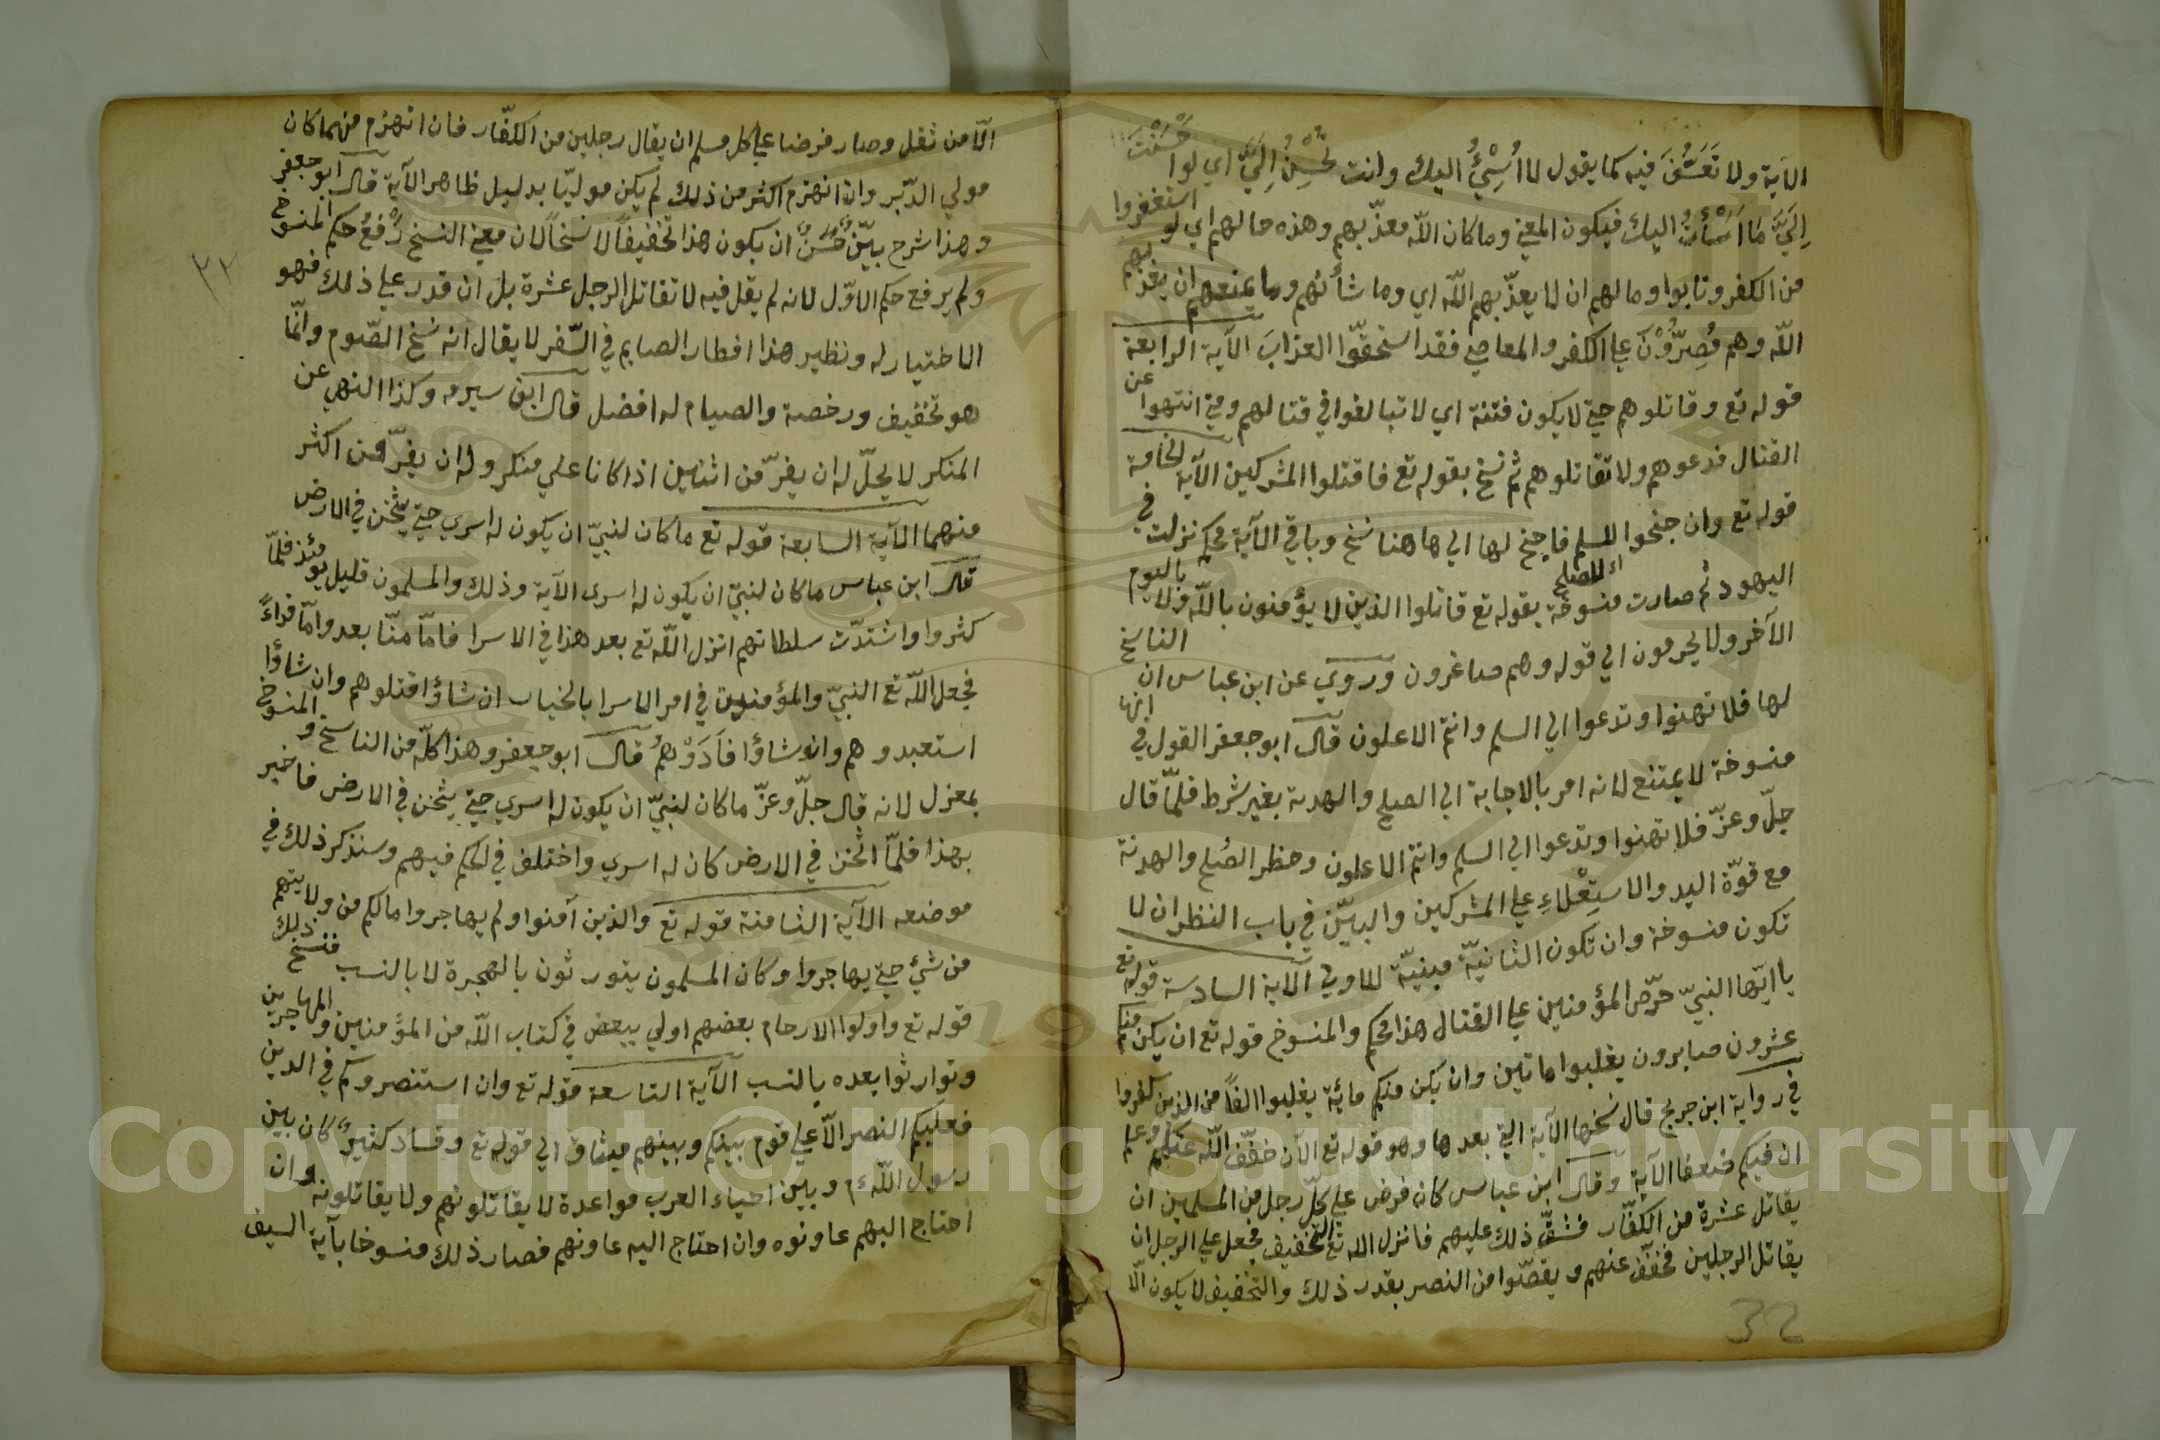 الآية ولا تَعَسُّفَ فيه كما يقول لا أُسِيْئُ اليك وانت تُحْسِنُ اِلَيَّ اي لوا حَسَنْتَ
اِلَيَّ مَا اَسَأتُ اليك فيكون المعنى وما كان اللّه معذّبهم وهذه حالهم اي لو استغفروا
من الكفر وتابوا وما لهم ان لا يعذّبهم اللّه اي وما شأنهم وما يمنعهم ان يعذّبهم
اللّه وهم مُصِرُّوْنَ علي الكفر والمعاصي فقد استحقّوا العذابَ الآية الرابعة
قوله تع وقاتلوهم حتي لا يكون فتنة اي لا تبالغوا في قتالهم ومتي انتهوا عن
القتال فدعوهم ولا تقاتلوهم ثم نسخ بقوله تع فاقتلوا المشركين الآية الخامسة
قوله تع وان جنحوا للسلم فاجنح لها الي هاهنا نسخ وباقي الآية محكم نزلت في
اي للصلح
اليهود ثم صارت منسوخة بقوله تع قاتلوا الذين لا يؤمنون باللّه ولا باليوم
الآخر ولا يحرمون الي قوله وهم صاغرون وروي عن ابن عباس ان الناسخ
لها فلا تهنوا وتدعوا الي السلم وانتم الاعلون قال ابو جعفر القول في انها
منسوخة لا يمتنع لانه امر بالاجابة الي الصلح والهدنة بغير شرط فلمّا قال
جلّ وعزّ فلا تهنوا وتدعوا الي السلم وانتم الاعلون وحظر الصُلح والهدنة
مع قوّة اليد والاستِعْلاءِ علي المشركين والبيّن في باب النظر ان لا
تكون منسوخة وان تكون الثانيّة مبنيّة للاولي الآية السادسة قوله تع
يا ايّها النبيّ حرّض المؤمنين علي القتال هذا محكم والمنسوخ قوله تع ان يكن منكم
عشرون صابرون يغلبوا ماتين وان يكن منكم مائة يغلبوا الفاً من الذين كفروا
في رواية ابن جريج قال نسخها الآية التي بعدها وهو قوله تع الآن خفّف اللّه عنكم وعلم
ان فيكم ضعفا الآية وقال ابن عباس كان فرض علي كلّ رجل من المسلمين ان
يقاتل عشرة من الكفّار فشقّ ذلك عليهم فانزل الله تع التخفيف فجعل علي الرجل ان
يقاتل الرجلين فخفّف عنهم ويقصّوا من النصر بقدر ذلك والتخفيف لا يكون الّا
32
الّا من ثقل وصار فرضا علي كل مسلم ان يقال رجلين من الكفّار فان انهزم منهما كان
مولي الدّبر وان انهزم اكثر من ذلك لم يكن موليّا بدليل ظاهر الآية قال ابو جعفر
وهذا شرح بيّنٌ حَسَنٌ ان يكون هذا تخفيفاً لا نسخاً لان معني النسخ رُفعُ حكم المنسوخ
ولم يرفع حكم الاوّل لانه لم يقل فيه لا تقاتل الرجل عشرة بل ان قدر علي ذلك فهو
الاختيار له ونظير هذا افطار الصايم في السّفر لا يقال انه نسخ الصّوم وانّما
هو تخفيف ورخصة والصيام له افضل قال ابن سيرمه وكذا النهي عن
المنكر لا يحلّ له ان يفرّ من اثنين اذا كانا علي منكر وله ان يفرّ من اكثر
منهما الآية السابعة قوله تع ما كان لنبيّ ان يكون له اسري حتي يثخن في الارض
قال ابن عباس ما كان لنبيّ ان يكون له اسري الآية وذلك والمسلمون قليل يومئذ فلمّا
كثروا واشتدّت سلطانهم انزل اللّه تع بعد هذا في الاسرا فامّا منّا بعد وامّا فداءً
فجعل اللّه تع النبيّ والمؤمنين في امر الاسرا بالخيار ان شاؤا قتلوهم وان شاؤا
استعبدوهم وان شاؤا فَادَوْهمُ قال ابو جعفر وهذا كلّه من الناسخ والمنسوخ
بمعزل لانه قال جلّ وعزّ ما كان لنبيّ ان يكون له اسري حتي يثخن في الارض فاخبر
بهذا فلمّا اثخن في الارض كان له اسري واختلف في الحكم فيهم وسنذكر ذلك في
موضعه الآية الثامنة قوله تع والذين آمنوا ولم يهاجروا مالكم من ولايتهم
من شئ حتي يهاجروا وكان المسلمون يتورثون بالهجرة لا بالنسب فنسخ ذلك
قوله تع واولوا الارحام بعضهم اولي ببعض في كتاب اللّه من المؤمنين والمهاجرين
وتوارثوا بعده بالنسب الآية التاسعة قوله تع وان استنصروكم في الدين
فعليكم النصر الّا علي قوم بينكم وبينهم ميثاق الي قوله تع وفساد كثير كان بين
رسول اللّه م وبين احياء العرب مواعدة لا يقاتلونهم ولا يقاتلونه وان
احتاج اليهم عاونوه وان احتاج اليه عاونهم فصار ذلك منسوخا بآية السيف
٣٢
Copyright © King Saud University